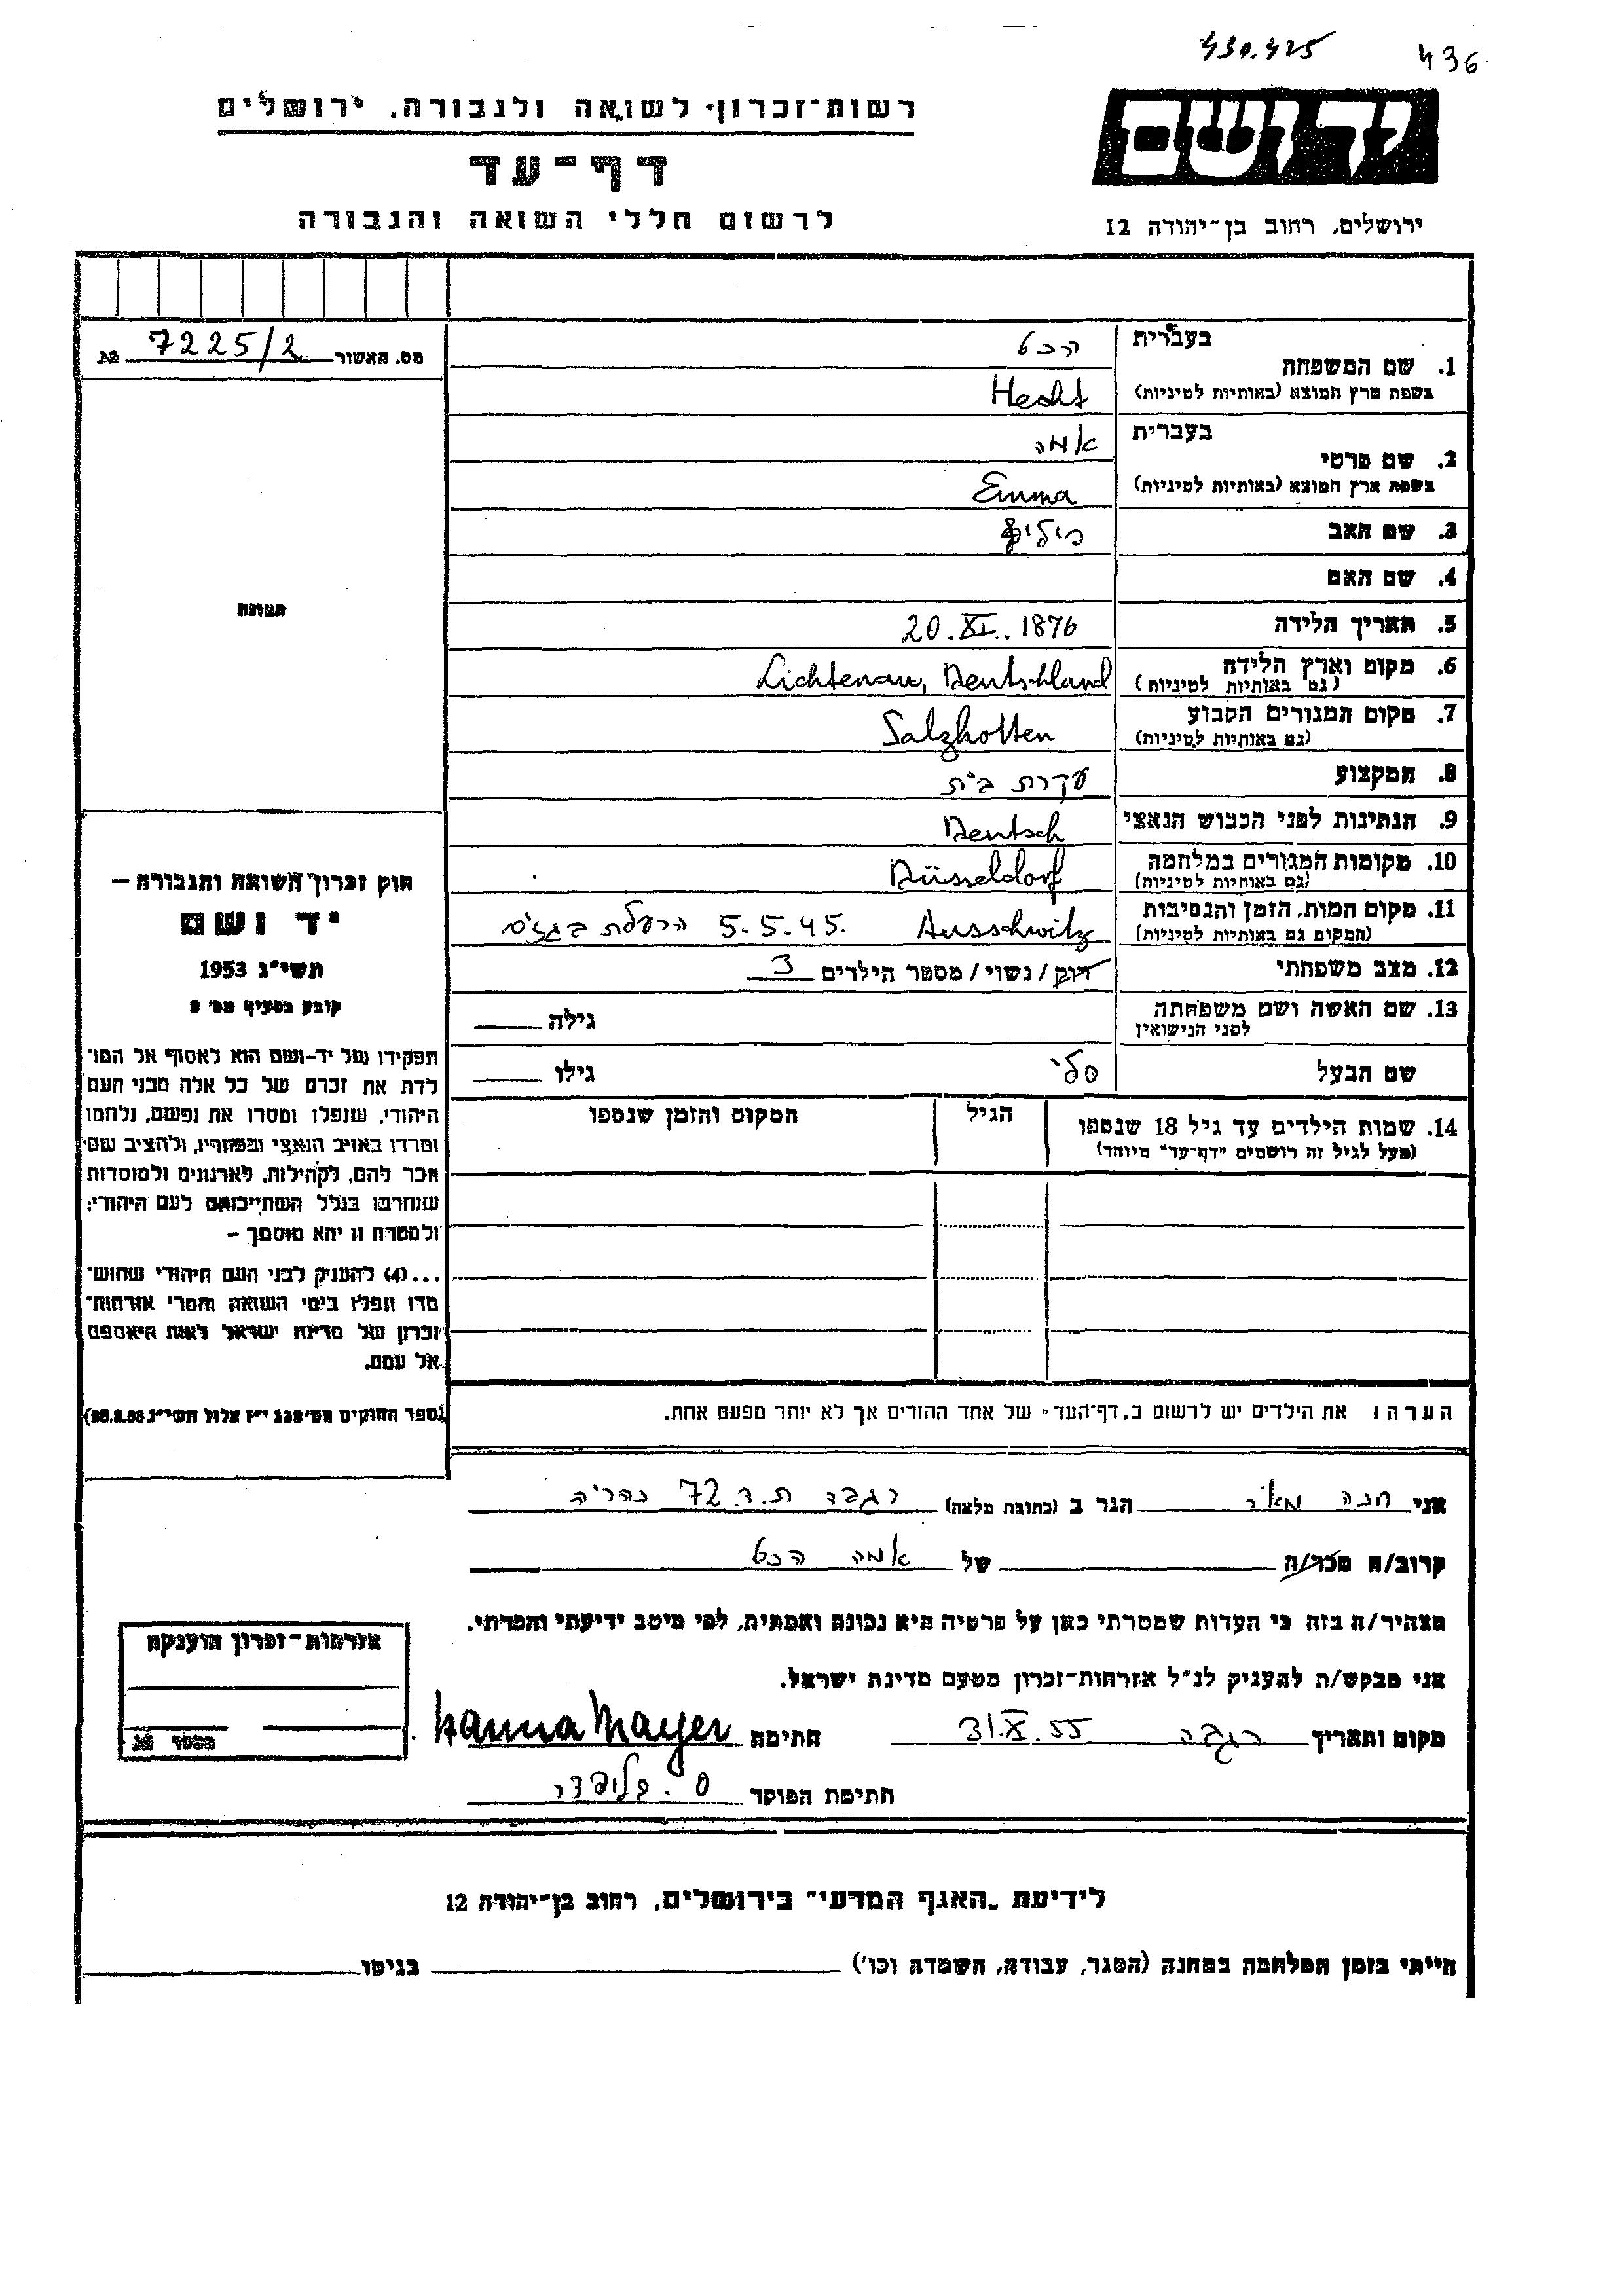 430.425 436
יד ושם
רשות־זכרון לשואה ולגבורה, ירושלים
דף־עד
לרשום חללי השואה והגבורה
ירושלים, רחוב בן־יהודה 12
מס. האשור 7225/2 №
תמונה
חוק זכרון השואה והגבורה —
יד ושם
תשי"ג 1953
קובע בסעיף מס׳ 2
תפקידו של יד-ושם הוא לאסוף אל המו־
לדת את זכרם של כל אלה מבני העם
היהודי, שנפלו ומסרו את נפשם, נלחמו
ומרדו באויב הנאצי ובעוזריו, ולהציב שם
וזכר להם, לקהילות, לארגונים ולמוסדות
שנחרבו בגלל השתייכותם לעם היהודי;
ולמטרה זו יהא מוסמך –
...(4) להעניק לבני העם היהודי שהוש־
מדו ונפלו בימי השואה והמרי אזרחות־
זכרון של מדינת ישראל לאות היאספם
אל עמם.
(ספר החוקים מס׳ 132 י"ז אלול תשי"ג 28.8.53)
1. שם המשפחה בעברית הכט
בשפת ארץ המוצא (באותיות לטיניות) Hecht
2. שם פרטי בעברית אמה
בשפת ארץ המוצא (באותיות לטיניות) Emma
3. שם האב פיליפ
4. שם האם
5. תאריך הלידה 20.XI.1876
6. מקום וארץ הלידה
(גם באותיות לטיניות) Lichtenau, Deutschland
7. מקום המגורים הקבוע
(גם באותיות לטיניות) Salzkotten
8. המקצוע עקרת בית
9. הנתינות לפני הכבוש הנאצי Deutsch
10. מקומות המגורים במלחמה
(גם באותיות לטיניות) Düsseldorf
11. מקום המות, הזמן והנסיבות
(המקום גם באותיות לטיניות) Ausschwitz 5.5.45. הרעלת בגזים
12. מצב משפחתי רוק/נשוי/מספר הילדים 3
13. שם האשה ושם משפחתה
לפני הנישואין גילה
שם הבעל סלי גילו
14. שמות הילדים עד גיל 18 שנספו הגיל המקום והזמן שנספו
(מעל לגיל זה רושמים "דף־עד" מיוחד)
הערה: את הילדים יש לרשום ב„דף־העד" של אחד ההורים אך לא יותר מפעם אחת.
אני חנה מאיר הגר ב (כתובת מלאה) רגבה ת.ד. 72 נהריה
קרוב/ה מכר/ה של אמה הכט
מצהיר/ה בזה כי העדות שמסרתי כאן על פרטיה היא נכונה ואמתית, לפי מיטב ידיעתי והכרתי.
אני מבקש/ת להעניק לנ"ל אזרחות־זכרון מטעם מדינת ישראל.
מקום ותאריך רגבה 31.X.55 חתימה Hanna Mayer
חתימת הפוקד
אזרחות־זכרון הוענקה
מספר №
לידיעת „האגף המדעי" בירושלים, רחוב בן־יהודה 12
הייתי בזמן המלחמה במחנה (הסגר, עבודה, השמדה וכו׳) בגיטו